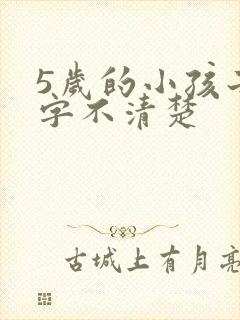 5歲的小孩
字不清楚
古城上有月亮